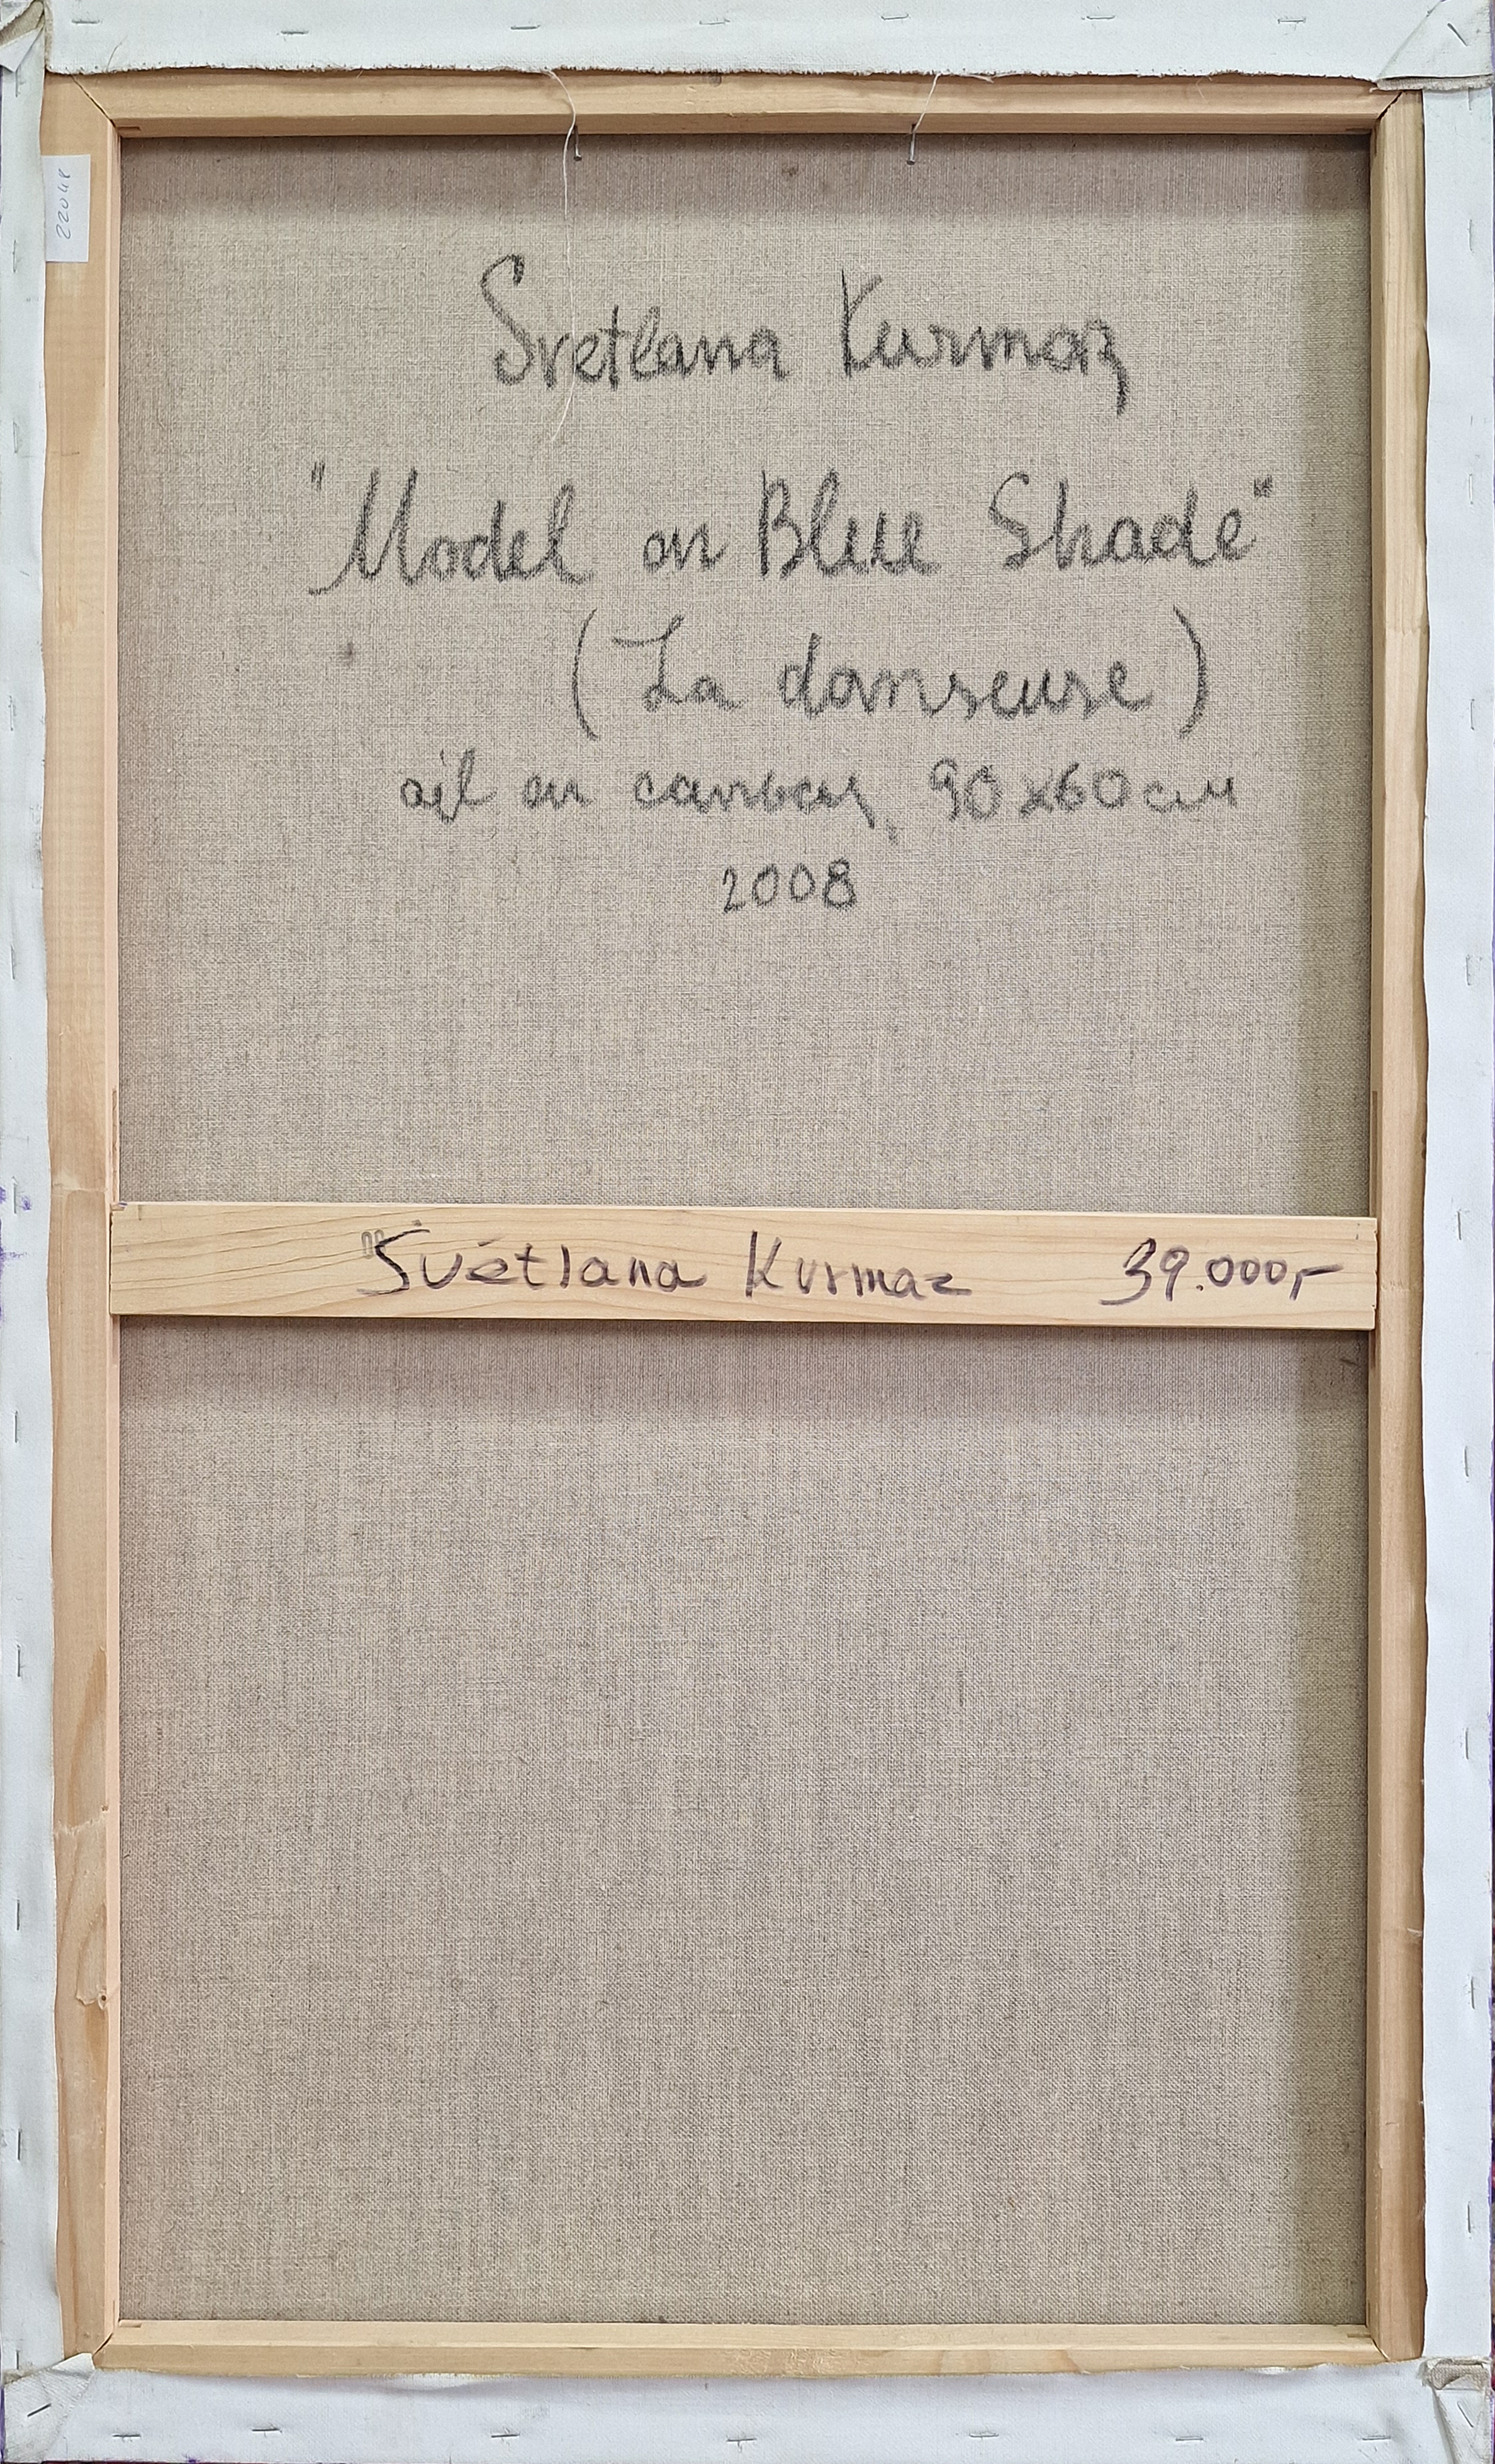 Svetlana Kurmaz
"Model on Blue Shade"
(La danseuse)
oil on canvas, 90x60 см
2008
Svetlana Kurmaz 39.000,-